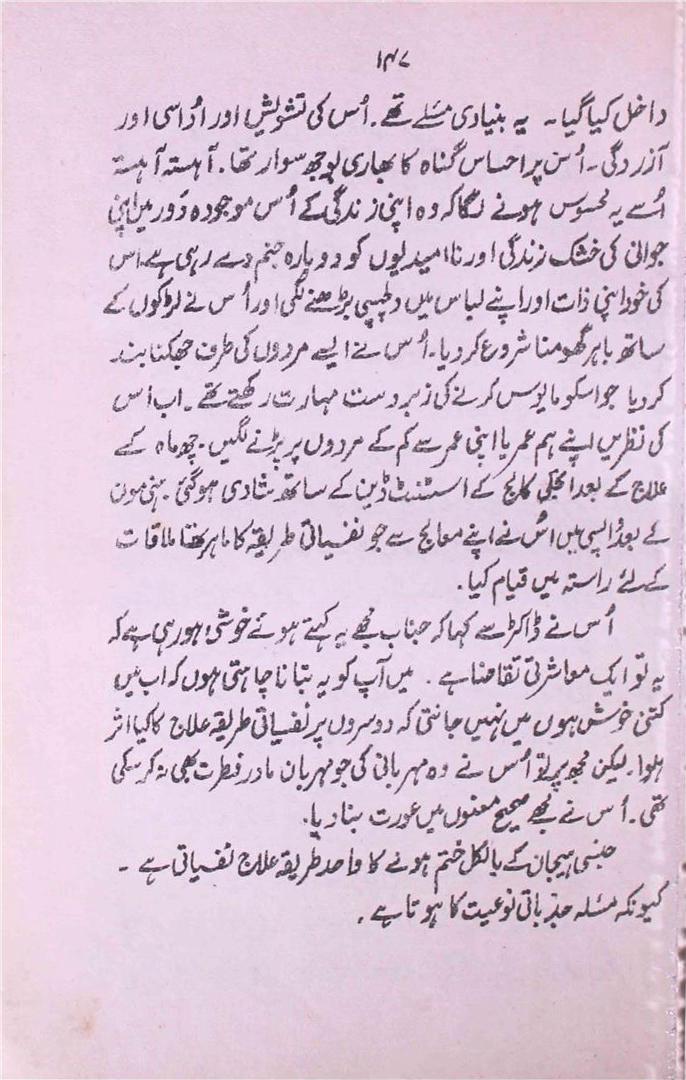 ۱۴۷
داخل کیا گیا۔ یہ بنیادی مسئلے تھے۔ اُس کی تشویش اور اُداسی اور
آزردگی۔ اُس پر احساس گناہ کا بھاری بوجھ سوار تھا۔ آہستہ آہستہ
اُسے یہ محسوس ہونے لگا کہ وہ اپنی زندگی کے اُس موجودہ دَور میں اپنی
جوانی کی خشک زندگی اور ناامیدیوں کو دوبارہ جنم دے رہی ہے۔ اس
کی خود اپنی ذات اور اپنے لباس میں دلچسپی بڑھنے لگی اور اُس نے لڑکوں کے
ساتھ باہر گھومنا شروع کر دیا۔ اُس نے ایسے مردوں کی طرف جھکنا بند
کر دیا جو اسکو مایوس کرنے کی زبردست مہارت رکھتے تھے۔ اب اس
کی نظریں اپنے ہم عمر یا اپنی عمر سے کم کے مردوں پر پڑنے لگیں۔ چھ ماہ کے
علاج کے بعد کالج کے اسسٹنٹ ڈین کے ساتھ شادی ہو گئی۔ ہنی مون
کے بعد واپسی میں اُس نے اپنے معالج سے جو نفسیاتی طریقہ کا ماہر تھا ملاقات
کے لئے راستہ میں قیام کیا۔
اُس نے ڈاکٹر سے کہا کہ جناب مجھے یہ کہتے ہوئے خوشی ہو رہی ہے کہ
یہ تو ایک معاشرتی تقاضا ہے۔ میں آپ کو یہ بتانا چاہتی ہوں کہ اب میں
کتنی خوش ہوں میں نہیں جانتی کہ دوسروں پر نفسیاتی طریقہ علاج کا کیا اثر
ہوا۔ لیکن مجھ پر تو اُس نے وہ مہربانی کی جو مہربان مادر فطرت بھی نہ کر سکی
تھی۔ اُس نے مجھے صحیح معنوں میں عورت بنا دیا۔
جنسی ہیجان کے بالکل ختم ہونے کا واحد طریقہ علاج نفسیاتی ہے۔
کیونکہ مسئلہ جذباتی نوعیت کا ہوتا ہے۔